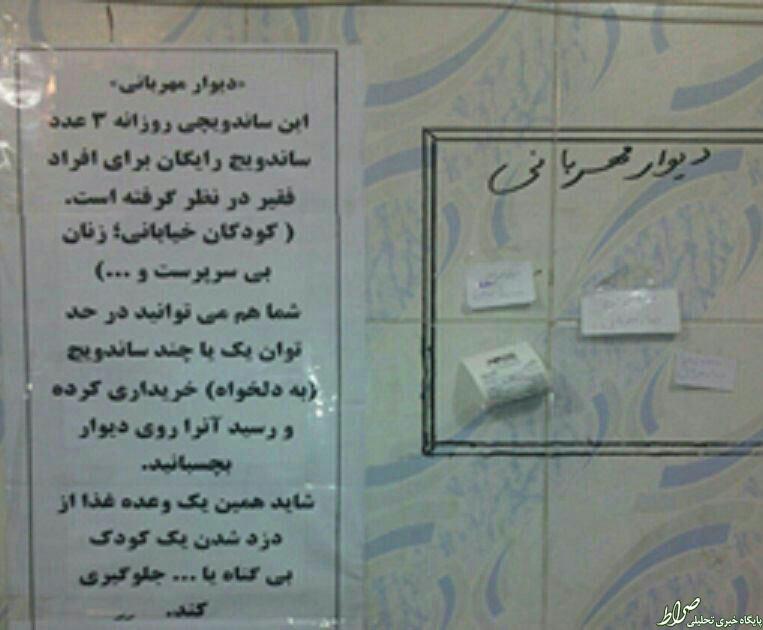 «دیوار مهربانی»
این ساندویچی روزانه ۳ عدد
ساندویچ رایگان برای افراد
فقیر در نظر گرفته است.
( کودکان خیابانی؛ زنان
بی سرپرست و ...)
شما هم می توانید در حد
توان یک یا چند ساندویچ
(به دلخواه) خریداری کرده
و رسید آنرا روی دیوار
بچسبانید.
شاید همین یک وعده غذا از
دزد شدن یک کودک
بی گناه یا ... جلوگیری
کند.
دیوار مهربانی
صراط
پایگاه خبری تحلیلی